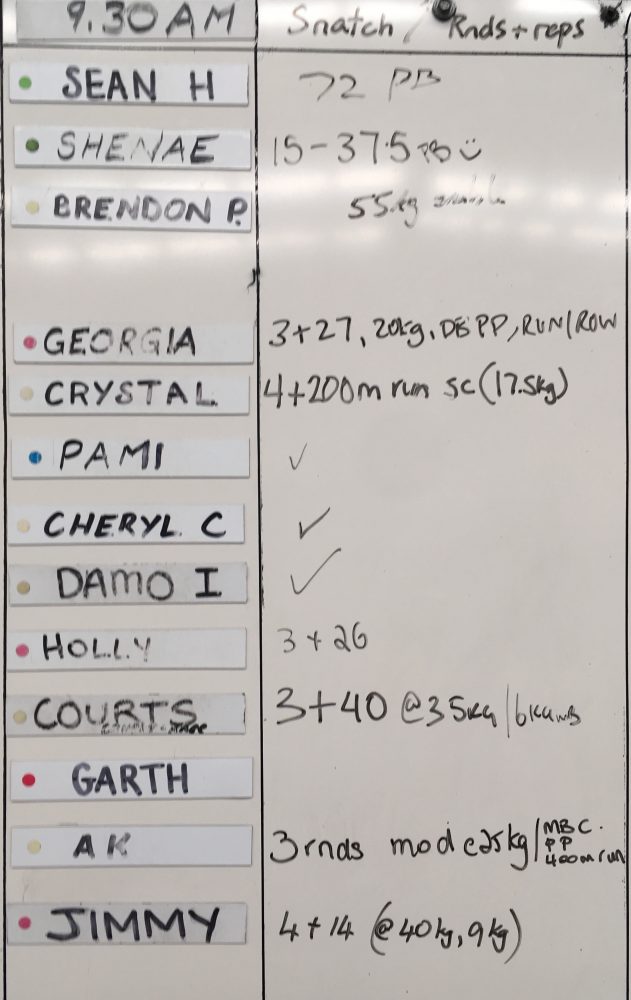 9.30AM Snatch / Rnds+reps
SEAN H 72 PB
SHENAE 15-37.5 PB
BRENDON P. 55kg
GEORGIA 3+27, 20kg, DB PP, RUN/ROW
CRYSTAL 4+200m run sc (17.5kg)
PAMI ✓
CHERYL C ✓
DAMO I ✓
HOLLY 3+26
COURTS 3+40 @35kg/6kg WB
GARTH
AK 3rnds mod @25kg/
MBC.
PP
400m run
JIMMY 4+14 (@40kg, 9kg)